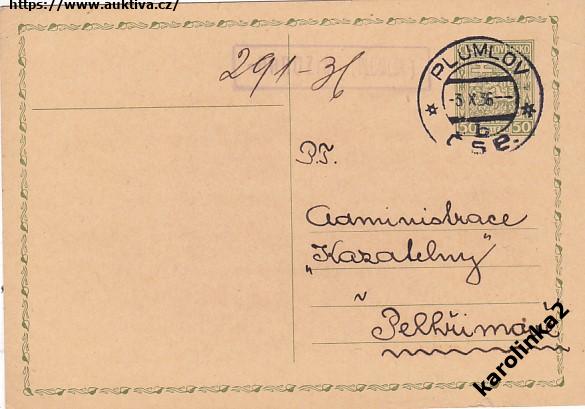 https://www.auktiva.cz/
291-36
PLUMLOV
-3.X.36-
b
ČSP.
50 50
P.T.
Administrace
"Kazatelny"
v
Pelhřimov
karolinka2